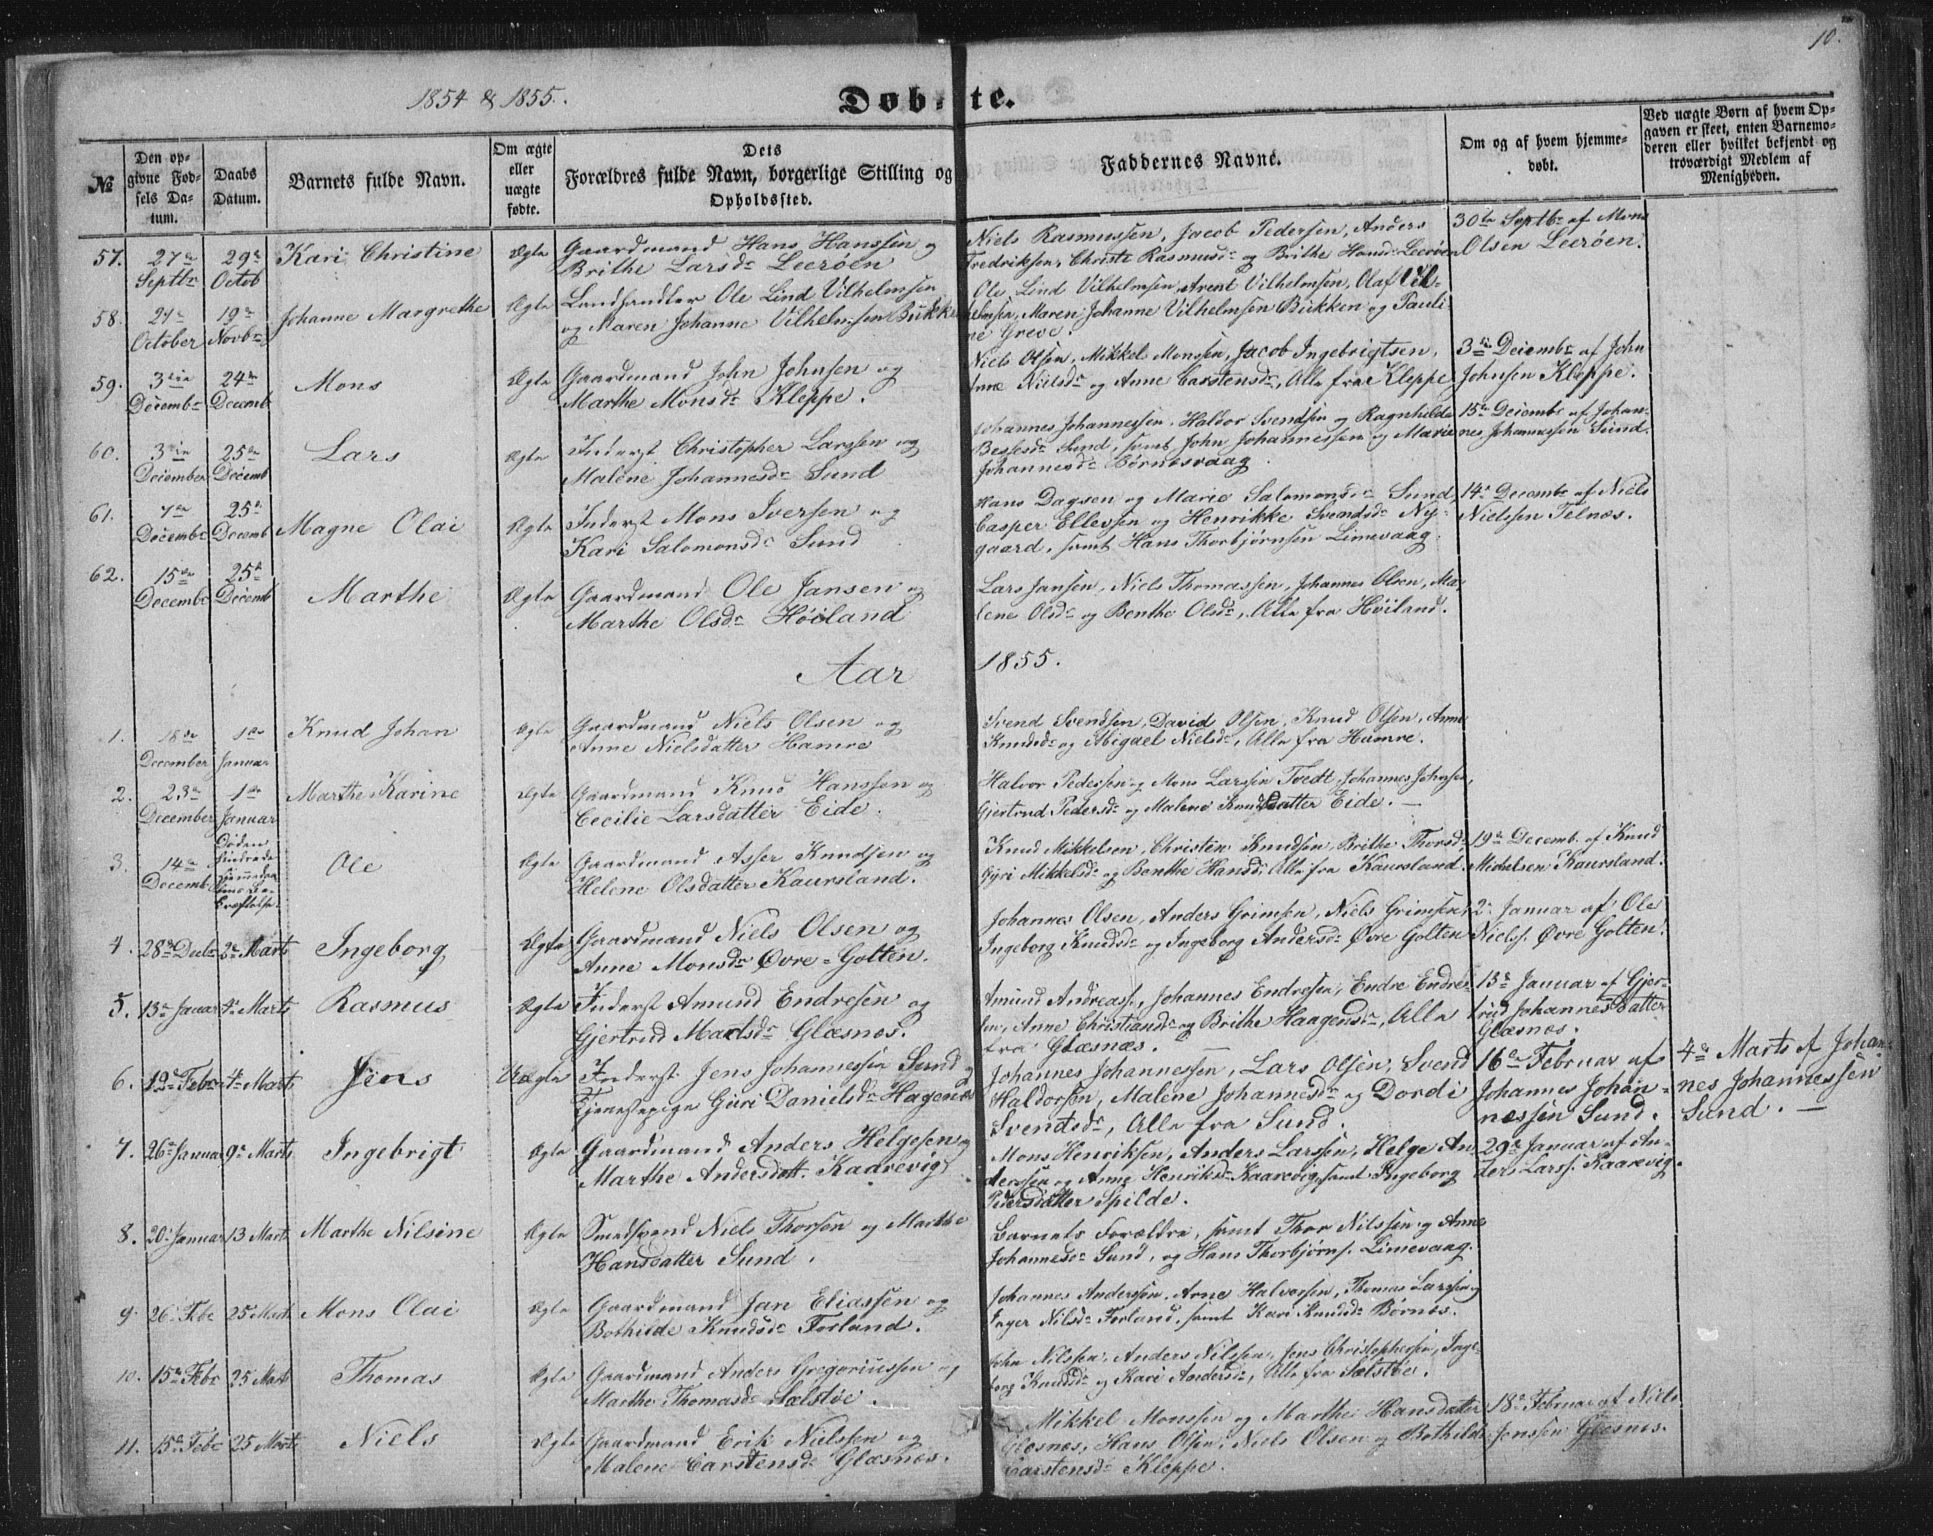 10.
1854 & 1855.
Døbte.
№
Den opgivne Fødsels Datum.
Daabs Datum.
Barnets fulde Navn.
Om ægte eller uægte fødte.
Dets Forældres fulde Navn, borgerlige Stilling og Opholdssted.
Faddernes Navne.
Om og af hvem hjemmedøbt.
Ved uægte Børn af hvem Opgaven er skeet, enten Barnemoderen eller hvilket bekjendt og troværdigt Medlem af Menigheden.
57. 27de Septbr 29de Octob Kari Christine Ægte Gaardmand Hans Hanssen og
Brithe Larsdr Leerøen
Niels Rasmussen, Jacob Pedersen, Anders
Fredriksen, Christi Rasmusdr og Brithe Hansdr Leerøen
30te Septbr af Mons
Olsen Leerøen.
58. 21de October 19de Novbr Johanne Margrethe Ægte Landhandler Ole Lind Vilhelmsen
og Maren Johanne Vilhelmsen Bukken
Ole Lind Vilhelmsen, Arent Vilhelmsen, Olaf Vil-
helmsen, Maren Johanne Vilhelmsen Bukken og Pauli-
ne Greve.
59. 3die Decembr 24de Decemb Mons Ægte Gaardmand John Johnsen og
Marthe Monsdr Kleppe.
Niels Olsen, Mikkel Monsen, Jacob Ingebrigtsen,
Anne Nielsdr og Anne Carstensdr, Alle fra Kleppe
3die Decembr af John
Johnsen Kleppe.
60. 3die December 25de Decemb Lars Ægte Inderst Christopher Larssen og
Malene Johannesdr Sund
Johannes Johannessen, Haldor Svendsen og Ragnhilde
Bessesdr Sund, samt John Johannessen og Marie
Johannesdr Børnesvaag.
15de Decembr af Johan-
nes Johannessen Sund.
61. 7de Decembr 25de Decemb Magne Olai Ægte Inderst Mons Iversen og
Kari Salomonsdr Sund
Hans Dagsen og Marie Salomonsdr Sund
Casper Ellevsen og Henrikke Svendsdr Ny-
gaard, samt Hans Thorbjørnsen Limevaag.
14de Decembr af Niels
Nielssen Telnæs.
62. 15de Decembr 25de Decemb Marthe Ægte Gaardmand Ole Jansen og
Marthe Olsdr Høiland
Lars Jansen, Niels Thomassen, Johannes Olsen, Ma-
lene Olsdr og Benthe Olsdr, Alle fra Høiland.
Aar 1855.
1. 18de December 1ste Januar Knud Johan Ægte Gaardmand Niels Olsen og
Anne Nielsdatter Hamre
Svend Svendsen, David Olsen, Knud Olsen, Anne
Knudsdr og Abigael Nielsdr, Alle fra Hamre.
2. 23de December 1ste Januar Marthe Karine Ægte Gaardmand Knud Hanssen og
Cecilie Larsdatter Eide.
Halvor Pedersen og Mons Larssen Tvedt, Johannes Johnsen,
Gjertrud Pedersdr og Malene Knudsdatter Eide. —
3. 14de Decemb. Døden hindrede Ole Ægte Gaardmand Asser Knudsen og
Helene Olsdatter Kaursland.
Knud Mikkelsen, Christen Knudsen, Brithe Thorsdr,
Gyri Mikkelsdr og Benthe Hansdr, Alle fra Kaursland.
19de Decemb. af Knud
Michelsen Kaursland.
4. 28de Decbr 2den Marts Ingeborg Ægte Gaardmand Niels Olsen og
Anne Monsdr Øvre-Golten.
Johannes Olsen, Anders Grimsen, Niels Grimsen,
Ingeborg Knudsdr og Ingeborg Andersdr Øvre Golten
2den Januar af Ole
Nielss. Øvre Golten.
5. 13de Januar 4de Marts Rasmus Ægte Inderst Amund Endresen og
Gjertrud Madsdr Glæsnes.
Amund Andreass., Johannes Endresen, Endre Endre-
sen, Anne Christiansdr og Brithe Haagensdr, Alle
fra Glæsnæs. —
13de Januar af Gjer-
trud Johannesdatter
Glæsnæs.
6. 12te Febr 4de Marts Jens Uægte Inderst Jens Johannessen Sund og
Tjenestepige Guri Danielsdr Hagenæs
Johannes Johannessen, Lars Olsen, Svend
Haldorsen, Malene Johannesdr og Dordi
Svendsdr, Alle fra Sund.
16de Februar af
Johannes Johan-
nessen Sund.
4de Marts af Johan-
nes Johannessen
Sund. —
7. 26de Januar 9de Marts Ingebrigt Ægte Gaardmand Anders Helgesen og
Marthe Andersdatt. Kaarevig
Mons Henriksen, Anders Larssen, Helge An-
derssen og Anne Henriksdr Kaarevig, samt Ingeborg
Pedersdatter Spilde.
29de Januar af An-
ders Larss. Kaarevig.
8. 20de Januar 13 Marts Marthe Nilsine Ægte Smedsvend Niels Thorsen og Marthe
Hansdatter Sund.
Barnets Forældre, samt Thor Nilssen og Anne
Johannesdr Sund, og Hans Thorbjørns. Limevaag.
9. 26de Febr 25 Marts Mons Olai Ægte Gaardmand Jan Eliassen og
Bothilde Knudsdr Forland.
Johannes Anderssen, Arne Halvorsen, Thomas Larssen og
Inger Nilsdr Forland, samt Kari Knudsdr Børnes.
10. 15de Febr 25 Marts Thomas Ægte Gaardmand Anders Gregoriussen og
Marthe Thomasdr Sælstøe.
John Nilssen, Anders Nilssen, Jens Christophersen, Inge-
borg Knudsdr og Kari Andersdr, Alle fra Sælstøe.
11. 15de Febr 25 Marts Niels Ægte Gaardmand Erik Nielssen og
Malene Carstensdr Glæsnæs.
Mikkel Monssen og Marthe Hansdatter
Glæsnæs, Hans Olsen, Niels Olsen og Bothilde
Carstensdr Kleppe.
18de Februar af Niels
Jenssen Glæsnæs.